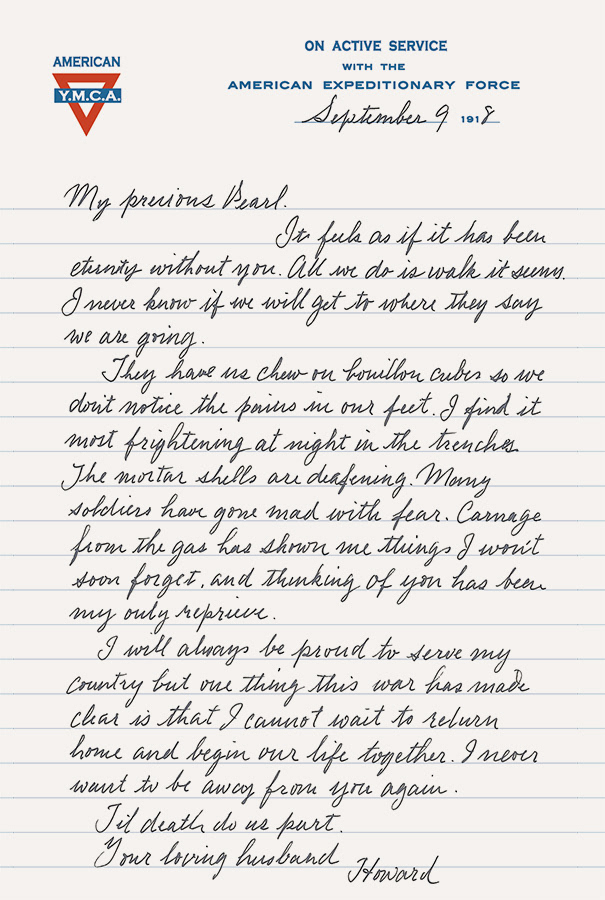 AMERICAN
Y.M.C.A.
ON ACTIVE SERVICE
WITH THE
AMERICAN EXPEDITIONARY FORCE
September 9 1918
My precious Pearl.
It feels as if it has been
eternity without you. All we do is walk it seems.
I never know if we will get to where they say
we are going.
They have us chew on bouillon cubes so we
don't notice the pains in our feet. I find it
most frightening at night in the trenches.
The mortar shells are deafening. Many
soldiers have gone mad with fear. Carnage
from the gas has shown me things I won't
soon forget, and thinking of you has been
my only reprieve.
I will always be proud to serve my
country but one thing this war has made
clear is that I cannot wait to return
home and begin our life together. I never
want to be away from you again.
Til death do us part.
Your loving husband
Howard